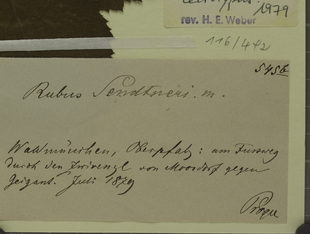 1979
rev. H. E. Weber
116/442
5456
Rubus Sendtneri m.
Waldmünchen, Oberpfalz: am Fussweg
durch den Zwirenzl von Moosdorf gegen
Geigant. Juli 1879
Progel